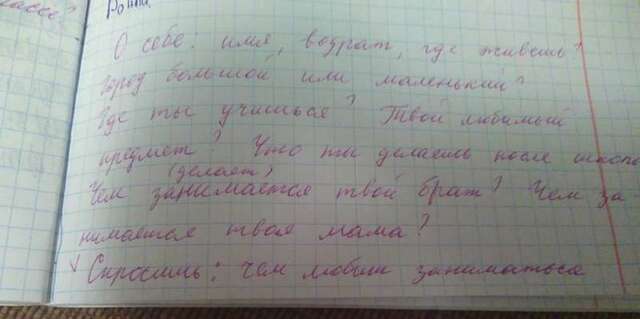 классе?
О себе: имя, возраст, где живёшь?
Город большой или маленький?
Где ты учишься? Твой любимый
предмет? Что ты делаешь после школ
(делает)
Чем занимается твой брат? Чем за-
нимается твоя мама?
Спросишь: чем любит заниматься